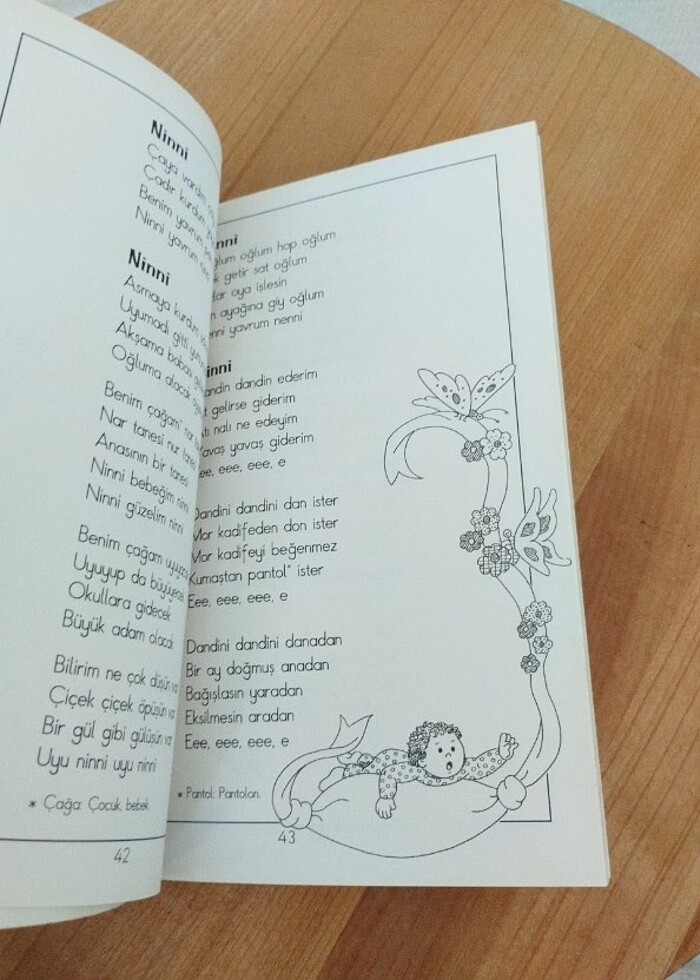 Ninni
Çaya vardım
Çadır kurdum
Benim yavrum
Ninni yavrum ninni
Ninni
Asmaya kurdum
Uyumadı gitti
Akşama babası
Oğluma alacak
Benim çağam* nar
Nar tanesi nur tanesi
Anasının bir tanesi
Ninni bebeğim ninni
Ninni güzelim ninni
Benim çağam
Uyuyup da büyüyecek
Okullara gidecek
Büyük adam olacak
Bilirim ne çok düşün var
Çiçek çiçek öpüşün var
Bir gül gibi gülüşün var
Uyu ninni uyu ninni
* Çağa: Çocuk, bebek.
42
oğlum hop oğlum
getir sat oğlum
oya işlesin
ayağına giy oğlum
yavrum nenni
dandin ederim
gelirse giderim
nalı ne edeyim
Yavaş yavaş giderim
eee, eee, e
Dandini dandini dan ister
Mor kadifeden don ister
Mor kadifeyi beğenmez
Kumaştan pantol* ister
Eee, eee, eee, e
Dandini dandini danadan
Bir ay doğmuş anadan
Bağışlasın yaradan
Eksilmesin aradan
Eee, eee, eee, e
* Pantol: Pantolon.
43